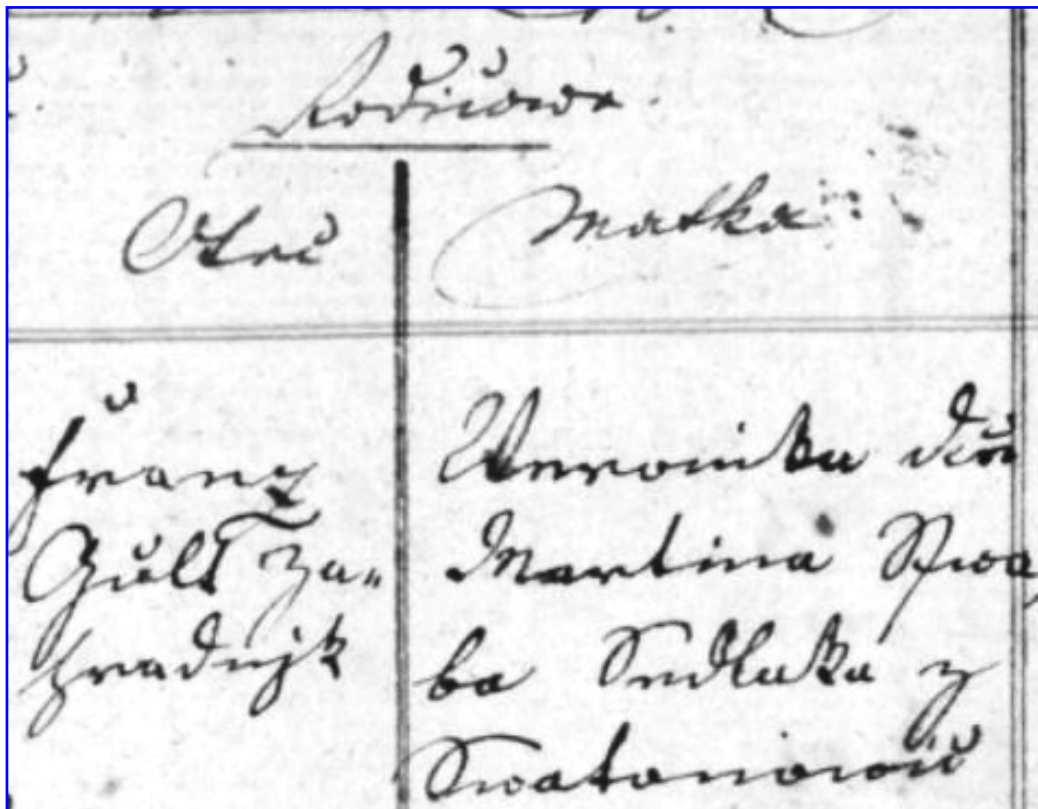 Rodičowe.
Otec
Matka
Franz
Gult Za=
hradnjk
Weronika dcera
Martina Šwa
ba Sedlaka z
Swatoniowic